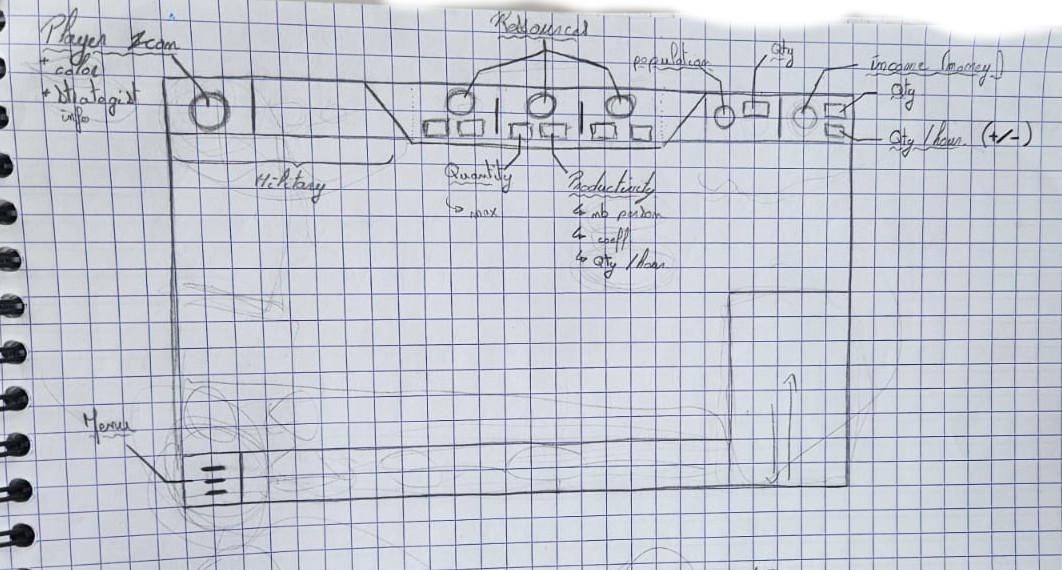 Ressources
Player Icon
+ color
+ Strategist
info
population
Qty
income (money)
Qty
Qty / hour (+/-)
Military
Quantity
↳ max
Productivity
↳ nb person
↳ coeff
↳ Qty / hour
Menu